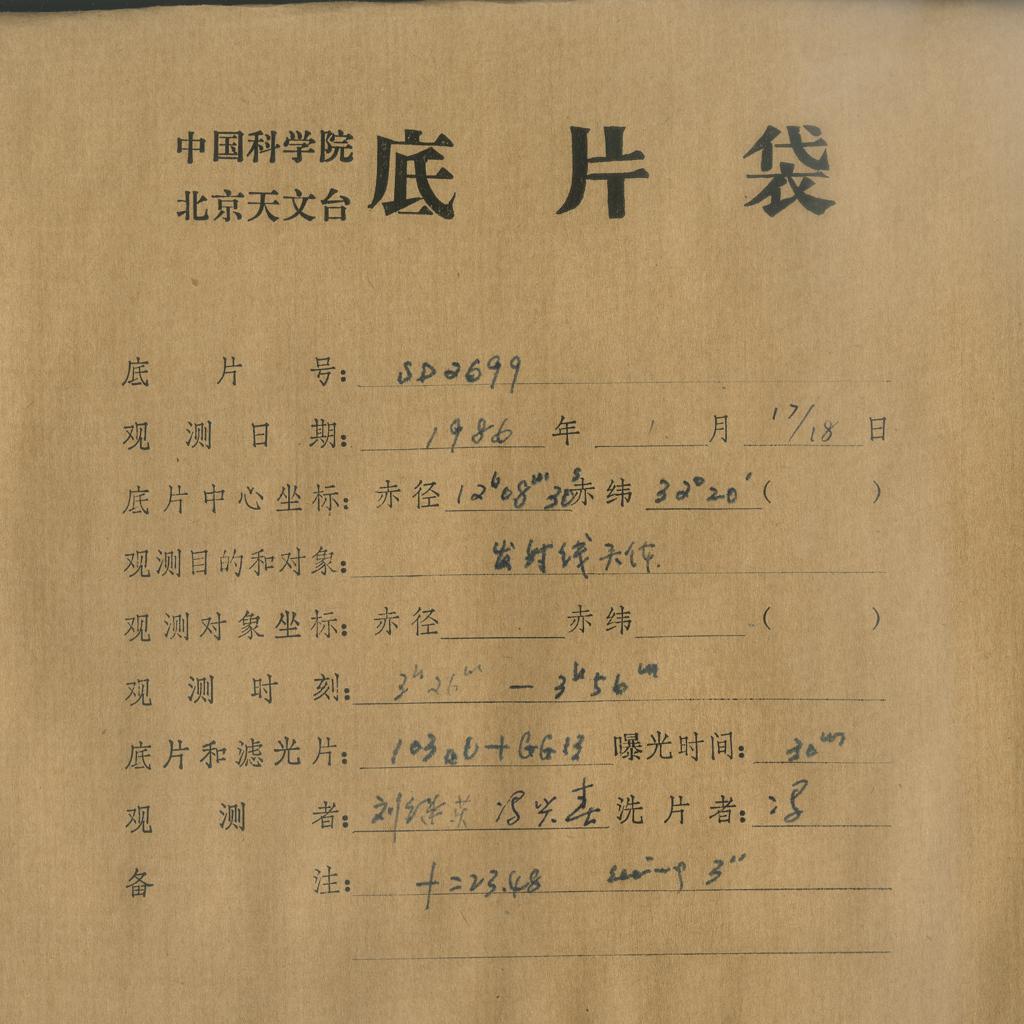 中国科学院
北京天文台
底片袋
底片号: SD2699
观测日期: 1986 年 1 月 17/18 日
底片中心坐标: 赤径 12h08m30s 赤纬 32°20′ ( )
观测目的和对象: 发射线天体
观测对象坐标: 赤径 赤纬 ( )
观测时刻: 3h26m — 3h56m
底片和滤光片: 103aO+GG13 曝光时间: 30m
观测者: 刘 冯兴春 洗片者: 冯
备注: f=23.48 seeing 3″